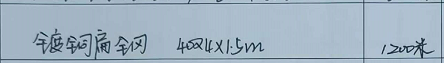 镀铜扁钢 40×4×1.5m 1200米